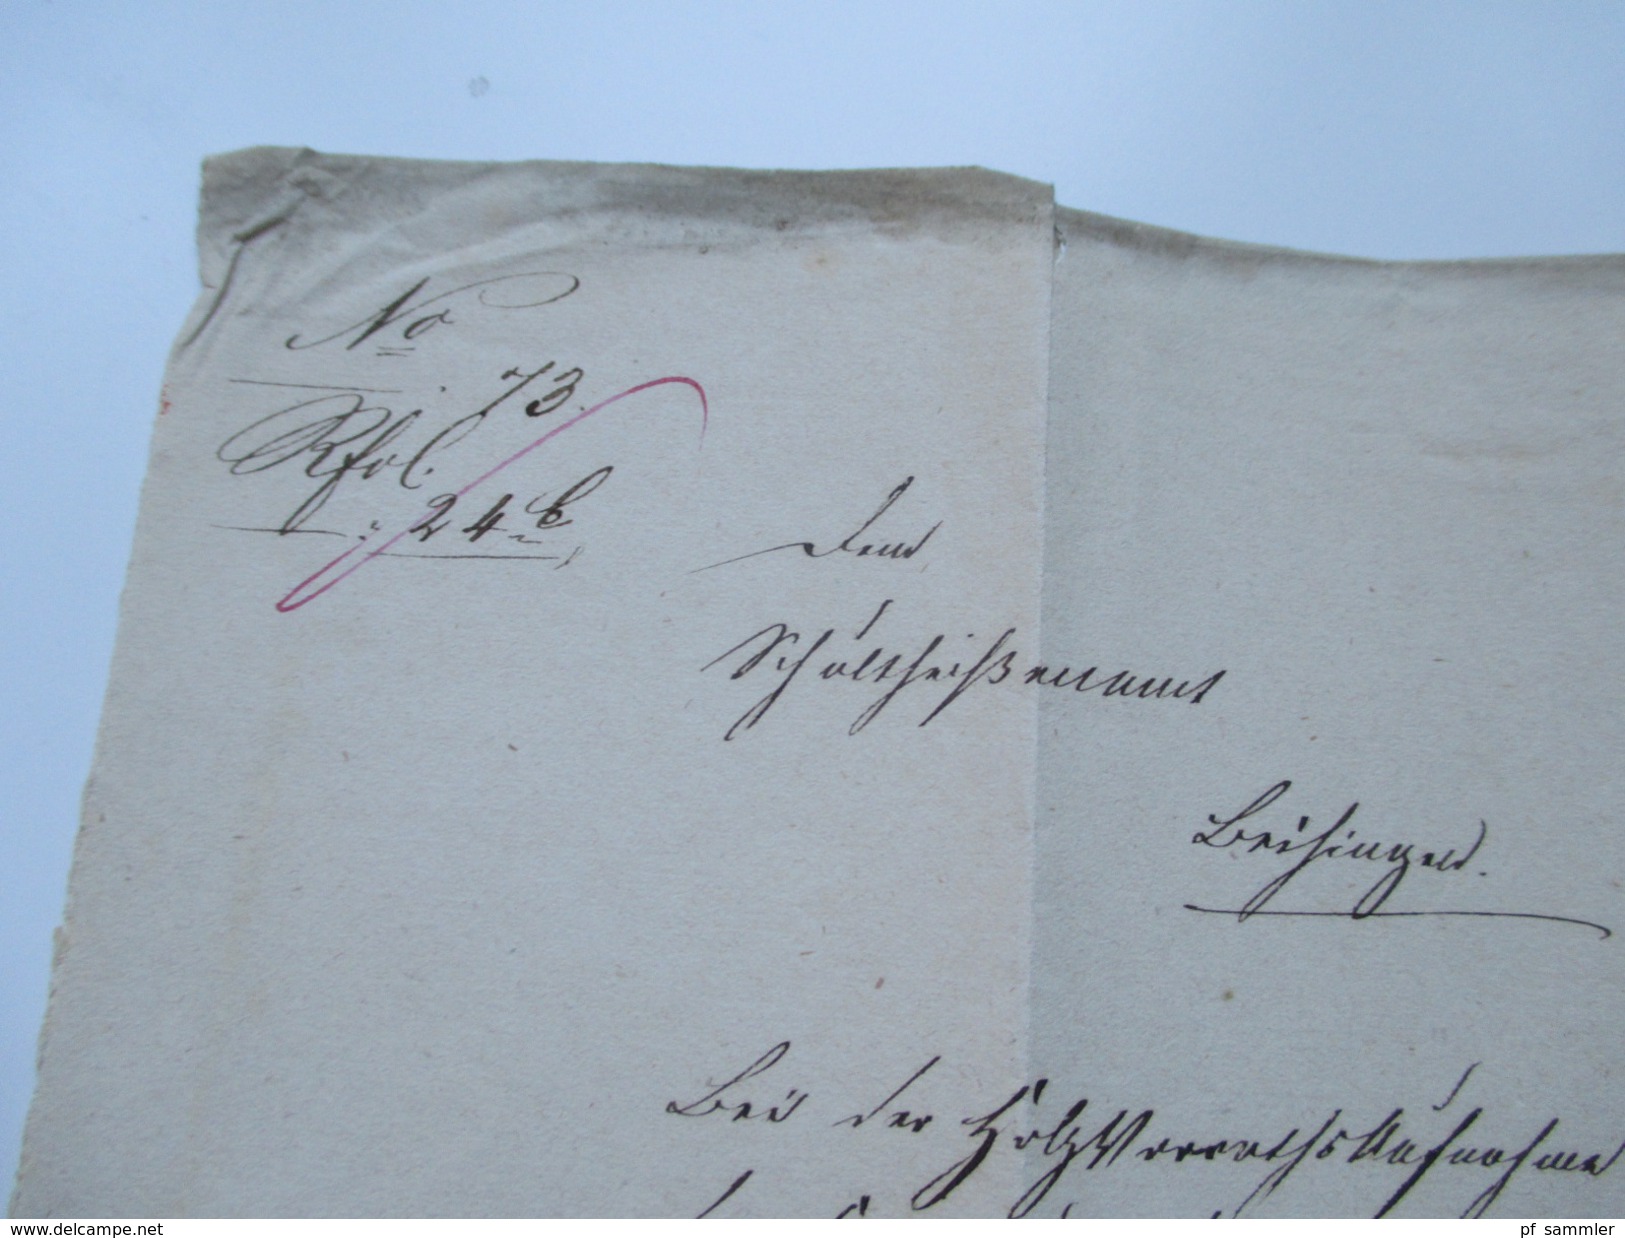 No
73.
Rfol.
24b
Dem
Schultheißenamt
Beihingen.
Bei der HolzVorrathsAufnahme
delcampe.net
pf_sammler